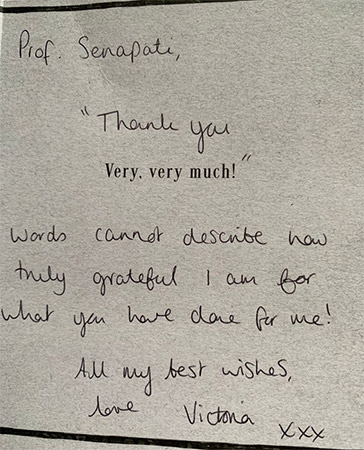 Prof. Senapati,
"Thank you
Very, very much!"
Words cannot describe how
truly grateful I am for
what you have done for me!
All my best wishes,
love Victoria xxx